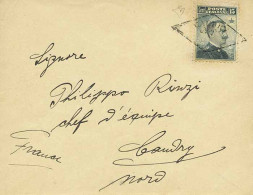 POSTE
15
Signore
Philippo Rinzi
chef d'équipe
Caudry
France
Nord